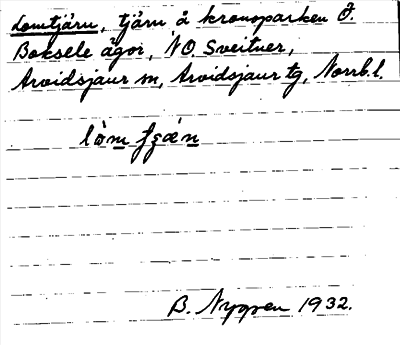 Lomtjärn, tjärn å kronoparken Ö.
Boksele ägor, NO Sveitner,
Arvidsjaur sn, Arvidsjaur tg, Norrb.l.
B. Nyppen 1932.